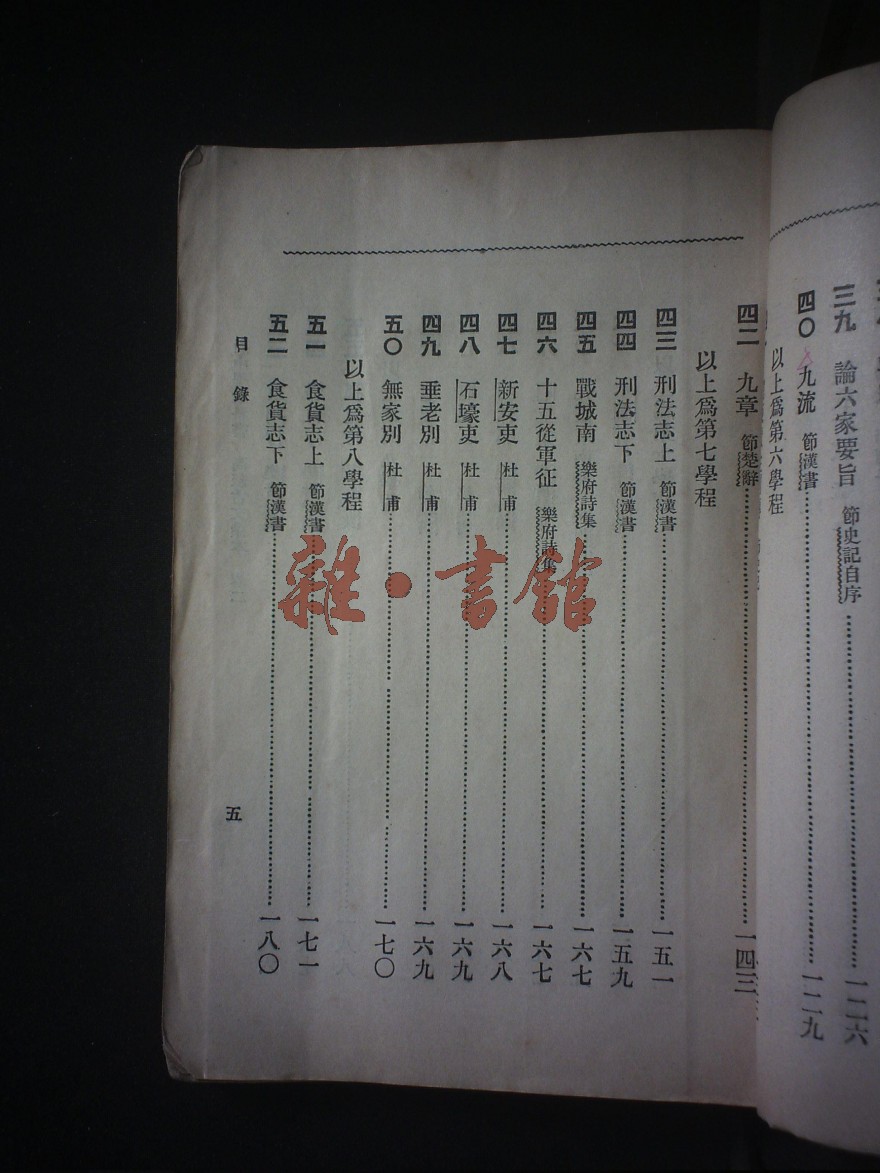 三九 論六家要旨 節史記自序 一二六
四〇 九流 節漢書 一二九
以上爲第六學程
四二 九章 節楚辭 一四三
以上爲第七學程
四三 刑法志上 節漢書 一五一
四四 刑法志下 節漢書 一五九
四五 戰城南 樂府詩集 一六七
四六 十五從軍征 樂府詩集 一六七
四七 新安吏 杜甫 一六八
四八 石壕吏 杜甫 一六九
四九 垂老別 杜甫 一六九
五〇 無家別 杜甫 一七〇
以上爲第八學程
五一 食貨志上 節漢書 一七一
五二 食貨志下 節漢書 一八〇
目錄
五
雜·書館